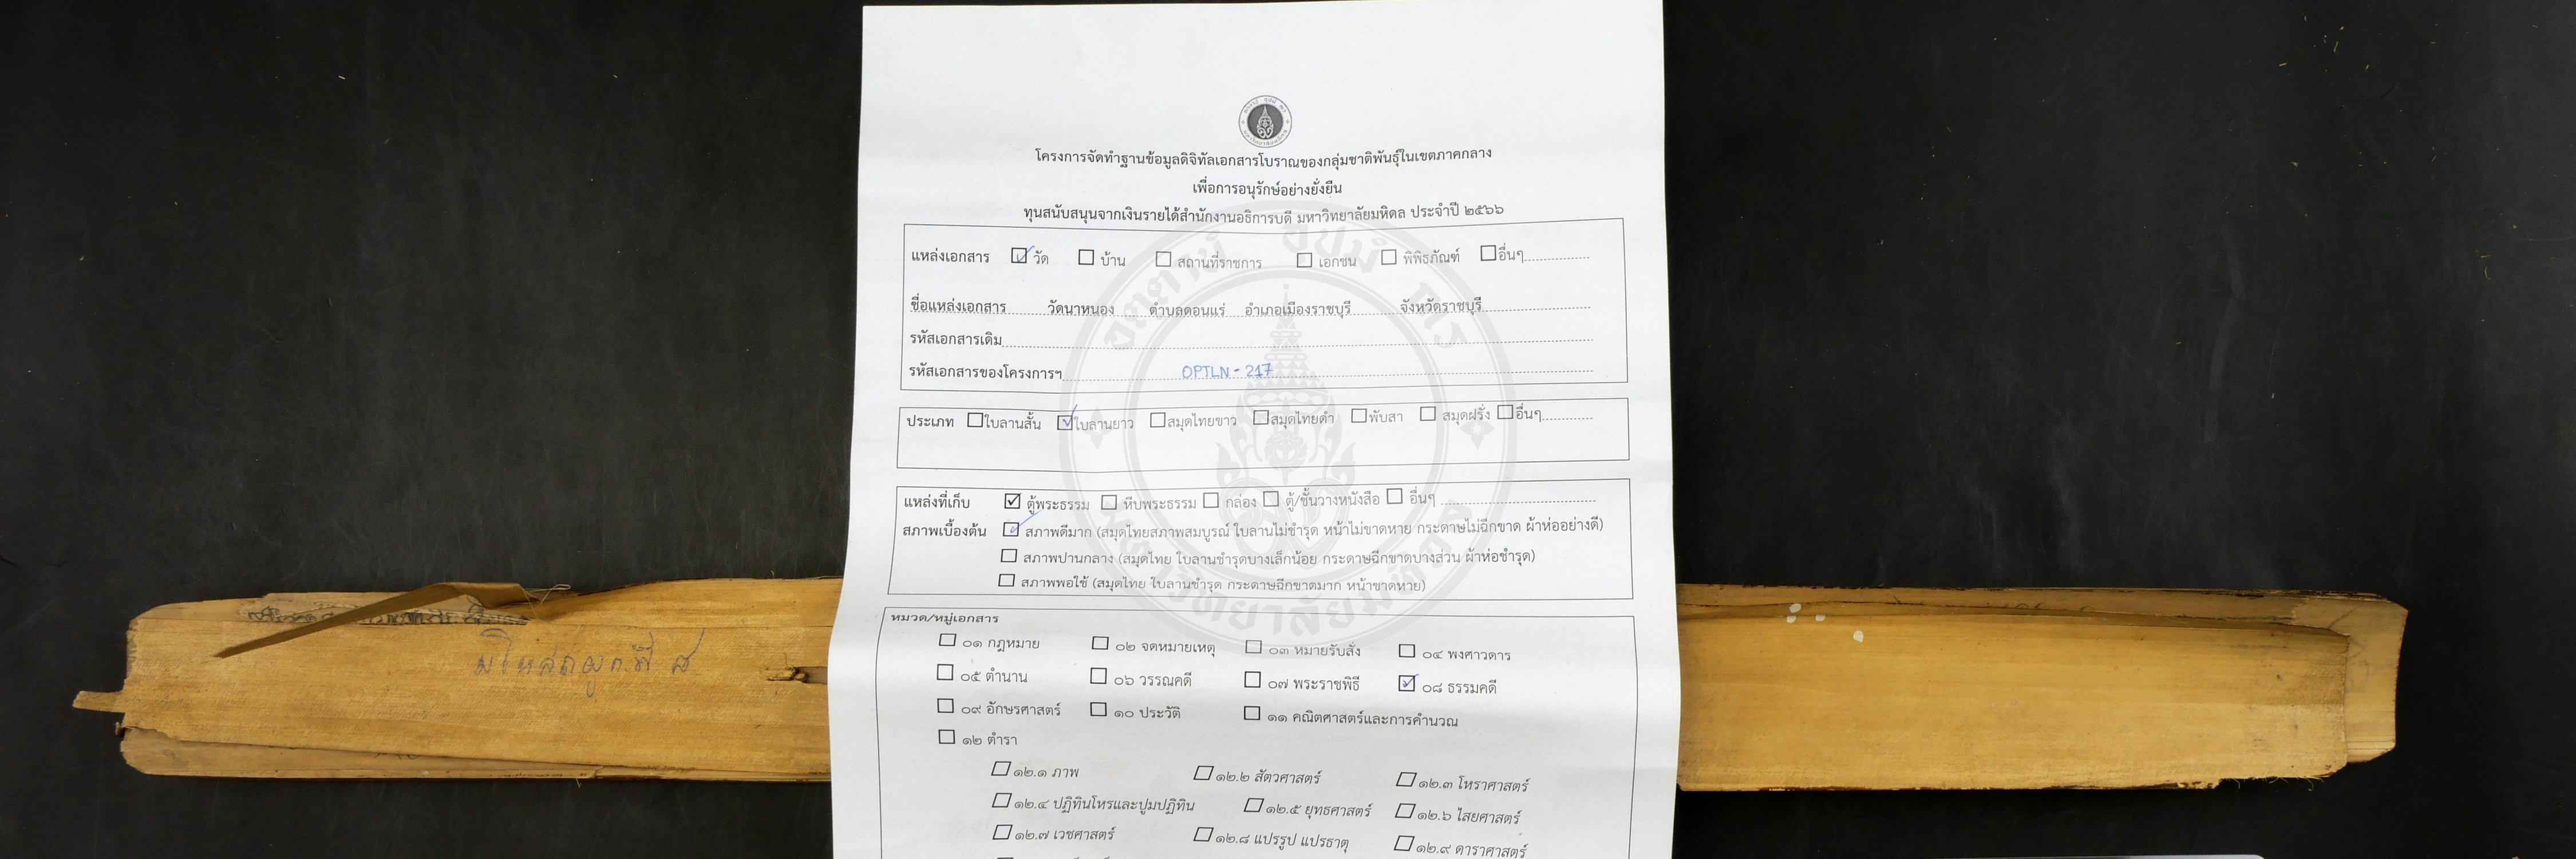 โครงการจัดทำฐานข้อมูลดิจิทัลเอกสารโบราณของกลุ่มชาติพันธุ์ในเขตภาคกลาง
เพื่อการอนุรักษ์อย่างยั่งยืน
ทุนสนับสนุนจากเงินรายได้สำนักงานอธิการบดี มหาวิทยาลัยมหิดล ประจำปี ๒๕๖๖
แหล่งเอกสาร วัด บ้าน สถานที่ราชการ เอกชน พิพิธภัณฑ์ อื่นๆ
ชื่อแหล่งเอกสาร วัดนาหนอง ตำบลดอนแร่ อำเภอเมืองราชบุรี จังหวัดราชบุรี
รหัสเอกสารเดิม
รหัสเอกสารของโครงการฯ OPTLN - 217
ประเภท ใบลานสั้น ใบลานยาว สมุดไทยขาว สมุดไทยดำ พับสา สมุดฝรั่ง อื่นๆ
แหล่งที่เก็บ ตู้พระธรรม หีบพระธรรม กล่อง ตู้/ชั้นวางหนังสือ อื่นๆ
สภาพเบื้องต้น สภาพดีมาก (สมุดไทยสภาพสมบูรณ์ ใบลานไม่ชำรุด หน้าไม่ขาดหาย กระดาษไม่ฉีกขาด ผ้าห่ออย่างดี)
สภาพปานกลาง (สมุดไทย ใบลานชำรุดบางเล็กน้อย กระดาษฉีกขาดบางส่วน ผ้าห่อชำรุด)
สภาพพอใช้ (สมุดไทย ใบลานชำรุด กระดาษฉีกขาดมาก หน้าขาดหาย)
หมวด/หมู่เอกสาร
๐๑ กฎหมาย ๐๒ จดหมายเหตุ ๐๓ หมายรับสั่ง ๐๔ พงศาวดาร
๐๕ ตำนาน ๐๖ วรรณคดี ๐๗ พระราชพิธี ๐๘ ธรรมคดี
๐๙ อักษรศาสตร์ ๑๐ ประวัติ ๑๑ คณิตศาสตร์และการคำนวณ
๑๒ ตำรา
๑๒.๑ ภาพ ๑๒.๒ สัตวศาสตร์ ๑๒.๓ โหราศาสตร์
๑๒.๔ ปฏิทินโหรและปูมปฏิทิน ๑๒.๕ ยุทธศาสตร์ ๑๒.๖ ไสยศาสตร์
๑๒.๗ เวชศาสตร์ ๑๒.๘ แปรรูป แปรธาตุ ๑๒.๙ ดาราศาสตร์